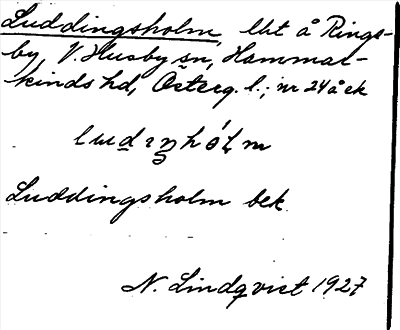 Luddingsholm, lht å Rings-
by, V. Husby sn, Hammar-
kinds hd, Österg. l.; nr 24 å ek
Luddingsholm bek.
N. Lindqvist 1927